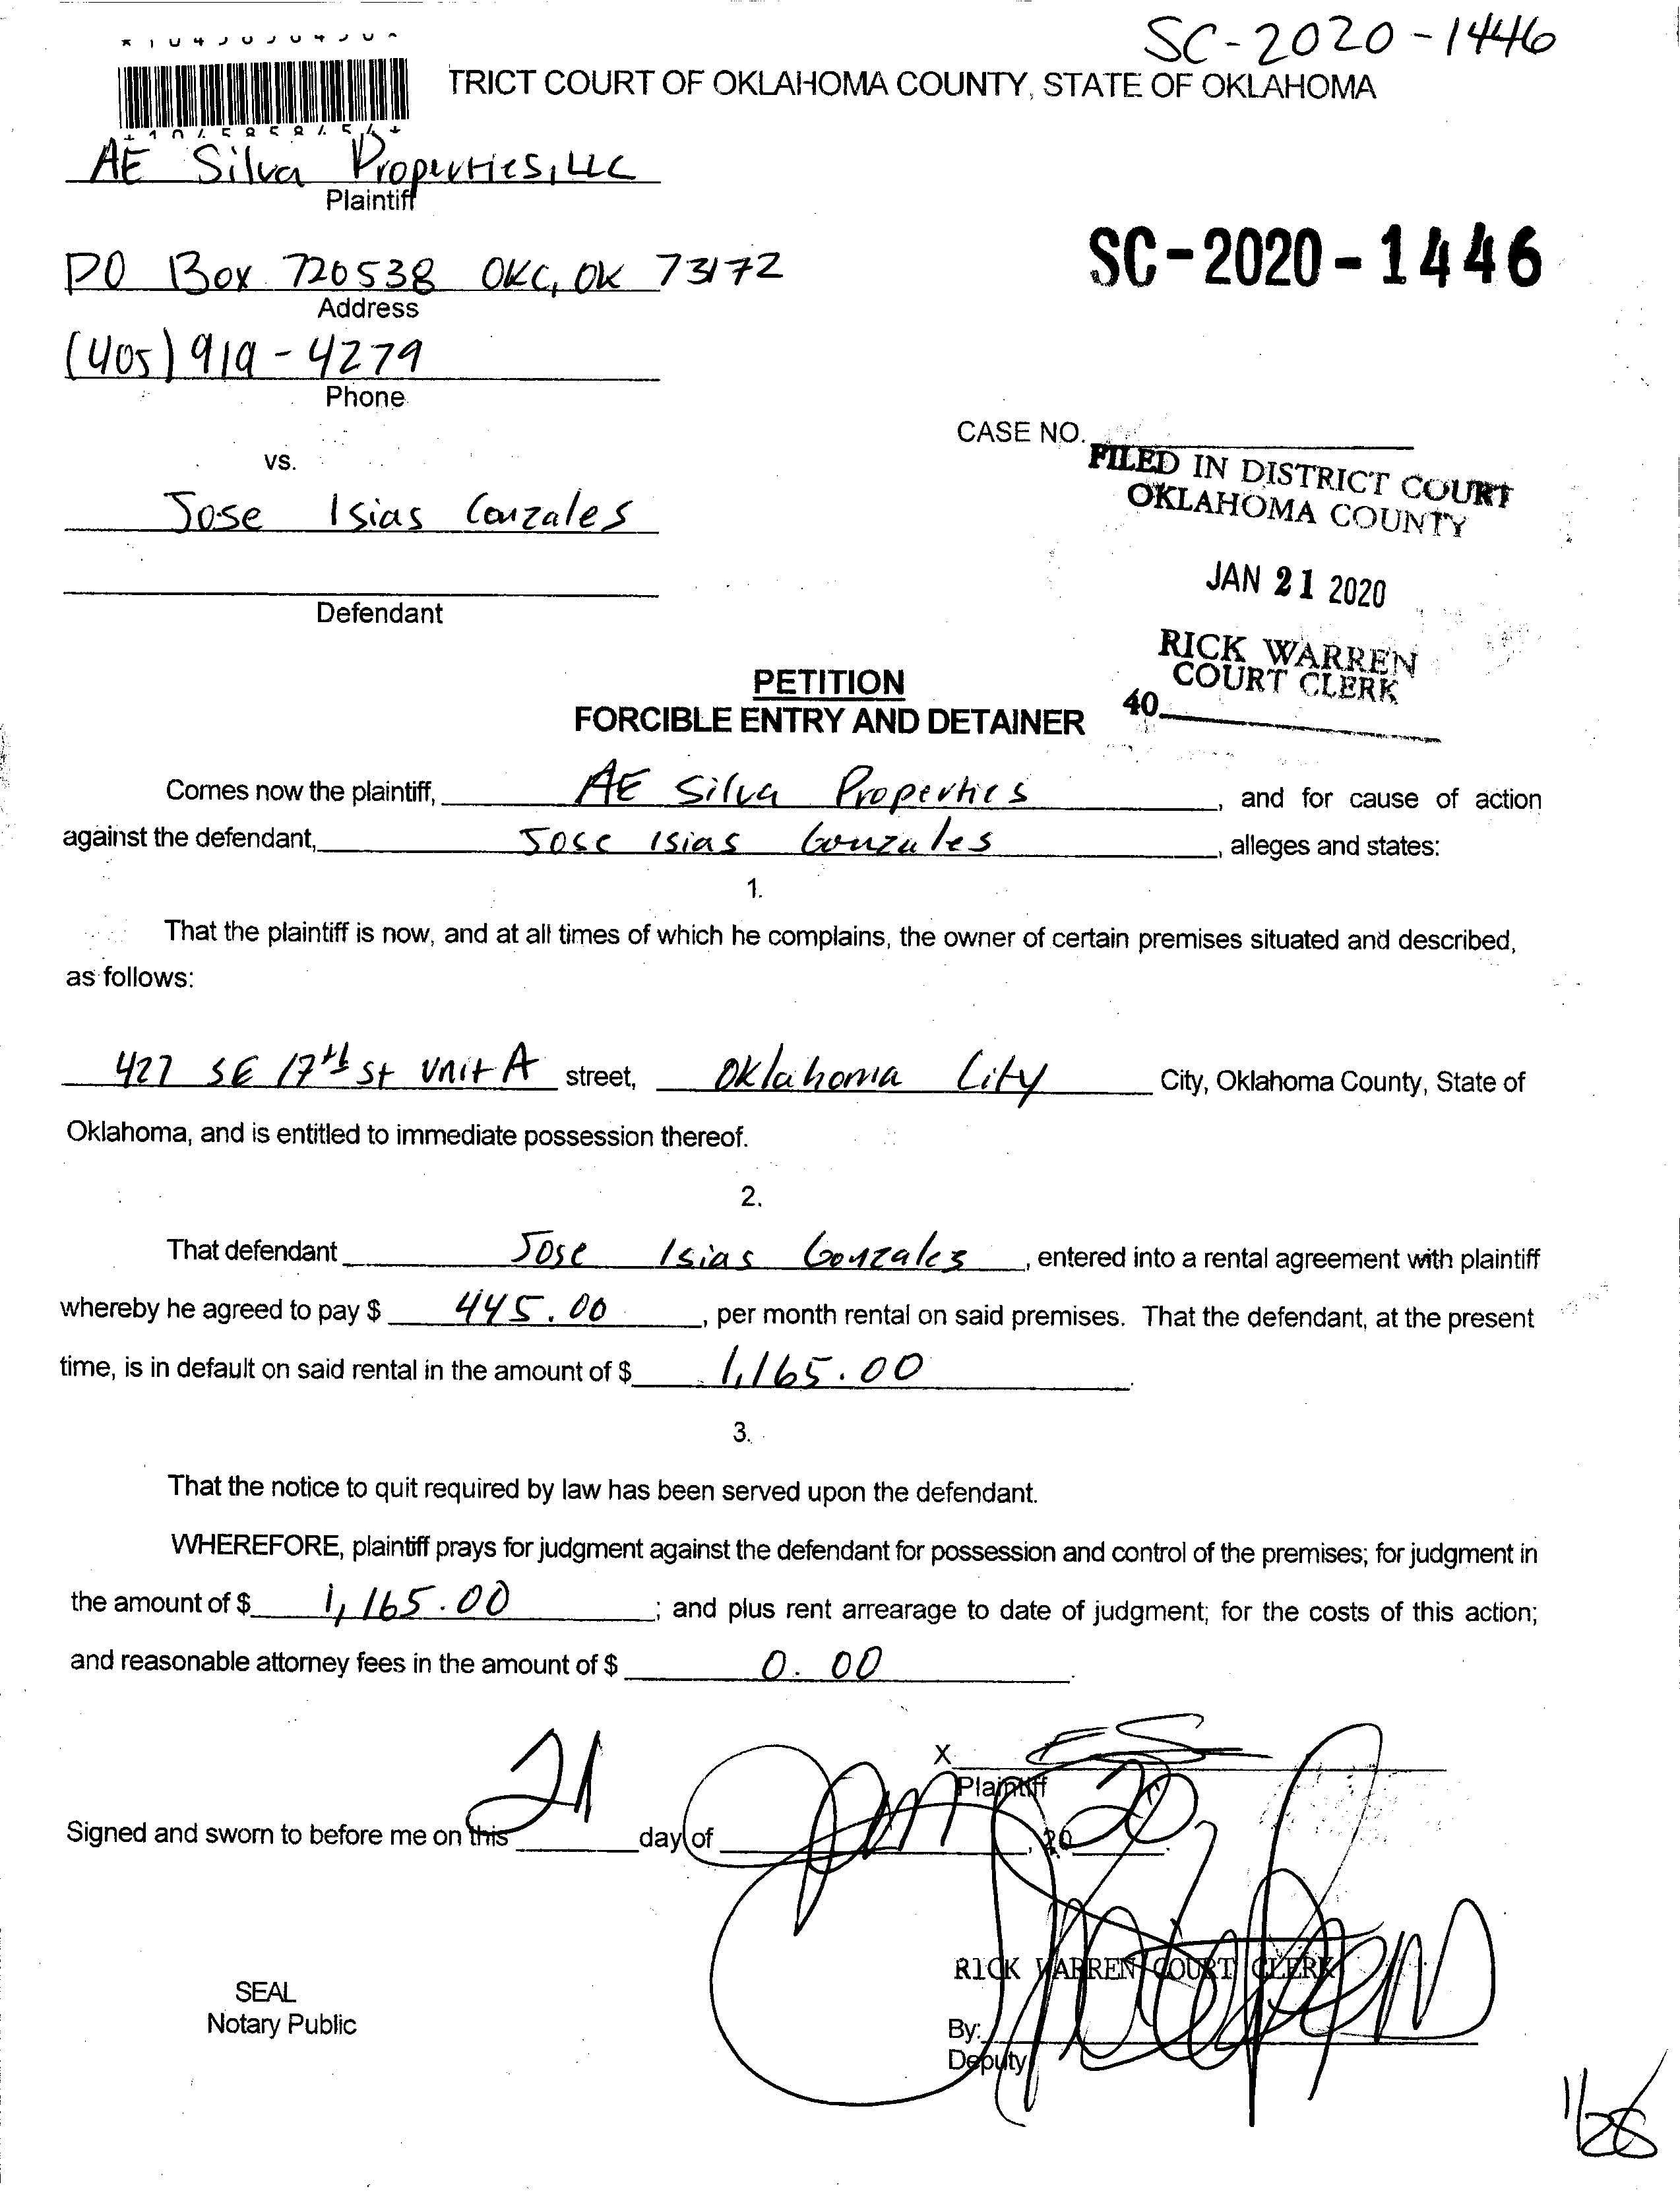 SC-2020-1446
TRICT COURT OF OKLAHOMA COUNTY, STATE OF OKLAHOMA
AE Silva Properties, LLC
Plaintiff
PO Box 720538 OKC, OK 73172
SC-2020-1446
Address
(405) 919-4279
Phone
CASE NO.
vs.
FILED IN DISTRICT COURT
OKLAHOMA COUNTY
Jose Isias Gonzales
JAN 21 2020
Defendant
RICK WARREN
COURT CLERK
40
PETITION
FORCIBLE ENTRY AND DETAINER
Comes now the plaintiff, AE Silva Properties, and for cause of action
against the defendant, Jose Isias Gonzales, alleges and states:
1.
That the plaintiff is now, and at all times of which he complains, the owner of certain premises situated and described,
as follows:
427 SE 17th St Unit A street, Oklahoma City City, Oklahoma County, State of
Oklahoma, and is entitled to immediate possession thereof.
2.
That defendant Jose Isias Gonzales, entered into a rental agreement with plaintiff
whereby he agreed to pay $ 445.00, per month rental on said premises. That the defendant, at the present
time, is in default on said rental in the amount of $ 1,165.00.
3.
That the notice to quit required by law has been served upon the defendant.
WHEREFORE, plaintiff prays for judgment against the defendant for possession and control of the premises; for judgment in
the amount of $ 1,165.00; and plus rent arrearage to date of judgment; for the costs of this action;
and reasonable attorney fees in the amount of $ 0.00.
X ES
Plaintiff
Signed and sworn to before me on this 21 day of Jan, 2020.
RICK WARREN COURT CLERK
SEAL
Notary Public
By:
Deputy
1/28